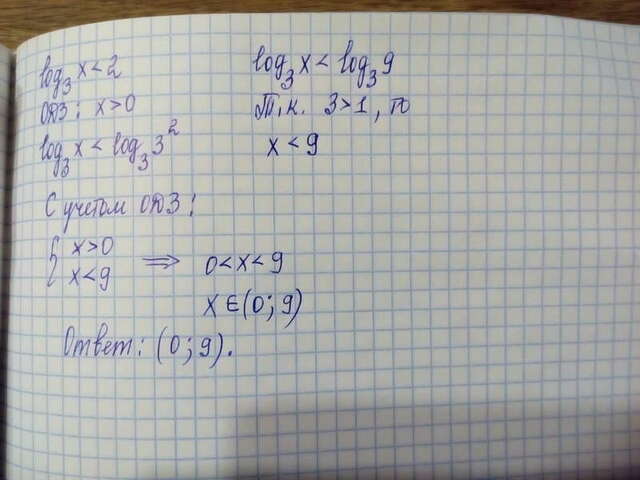 log₃x < 2
ОДЗ: x > 0
log₃x < log₃3²
log₃x < log₃9
Т.к. 3 > 1, то
x < 9
С учетом ОДЗ:
{ x > 0
x < 9
⇒ 0 < x < 9
x ∈ (0; 9)
Ответ: (0; 9).